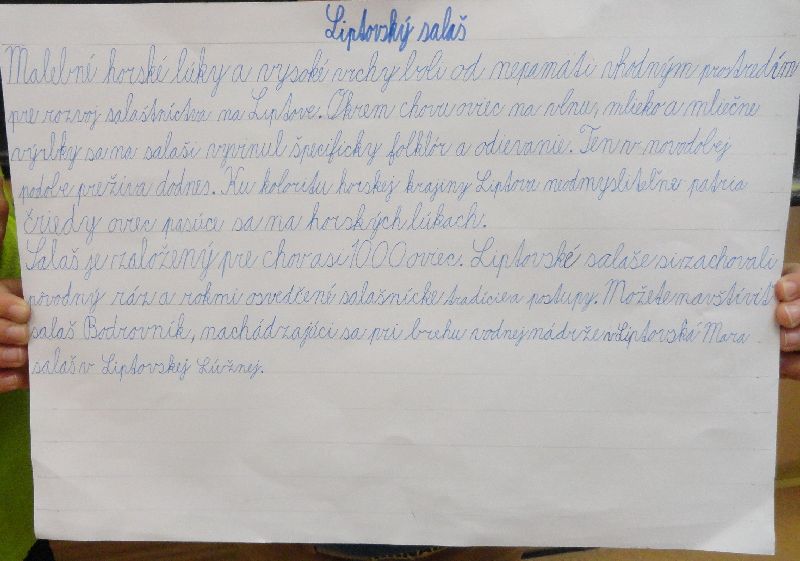 Liptovský salaš
Malebné horské lúky a vysoké vrchy boli od nepamäti vhodným prostredím
pre rozvoj salašníctva na Liptove. Okrem chovu oviec na vlnu, mlieko a mliečne
výrobky sa na salaši vyvinul špecifický folklór a odievanie. Ten v novodobej
podobe prežíva dodnes. Ku koloritu horskej krajiny Liptova neodmysliteľne patria
čriedy oviec pasúce sa na horských lúkach.
Salaš je založený pre chov asi 1000 oviec. Liptovské salaše si zachovali
pôvodný ráz a rokmi osvedčené salašnícke tradície a postupy. Možete navštíviť
salaš Bodrovník, nachádzajúci sa pri brehu vodnej nádrže v Liptovská Mara
salaš v Liptovskej Lúžnej.